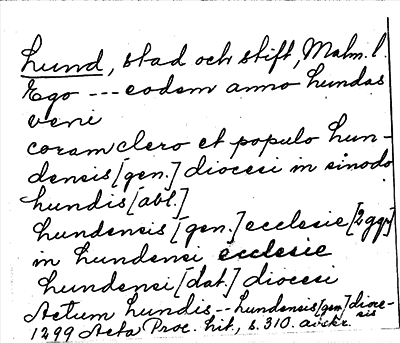 Lund, stad och stift, Malm. l.
Ego --- eodem anno Lundas
veni
coram clero et populo Lun-
densis [gen.] diocesi in sinodo
Lundis [abl.]
Lundensis [gen.] ecclesie [2 ggr]
in Lundensi ecclesie
Lundensi [dat.] diocesi
Actum Lundis -- Lundensis [gen] dioce-
sis
1299 Acta Proc. lit, s. 310. avskr.